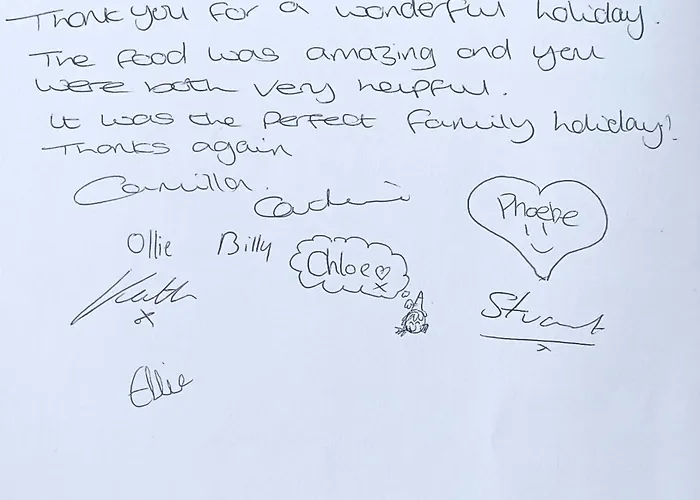 Thank you for a wonderful holiday.
The food was amazing and you
were both very helpful.
It was the perfect family holiday!
Thanks again
Camilla.
Phoebe
Ollie Billy Chloe
Stuart
Ellie